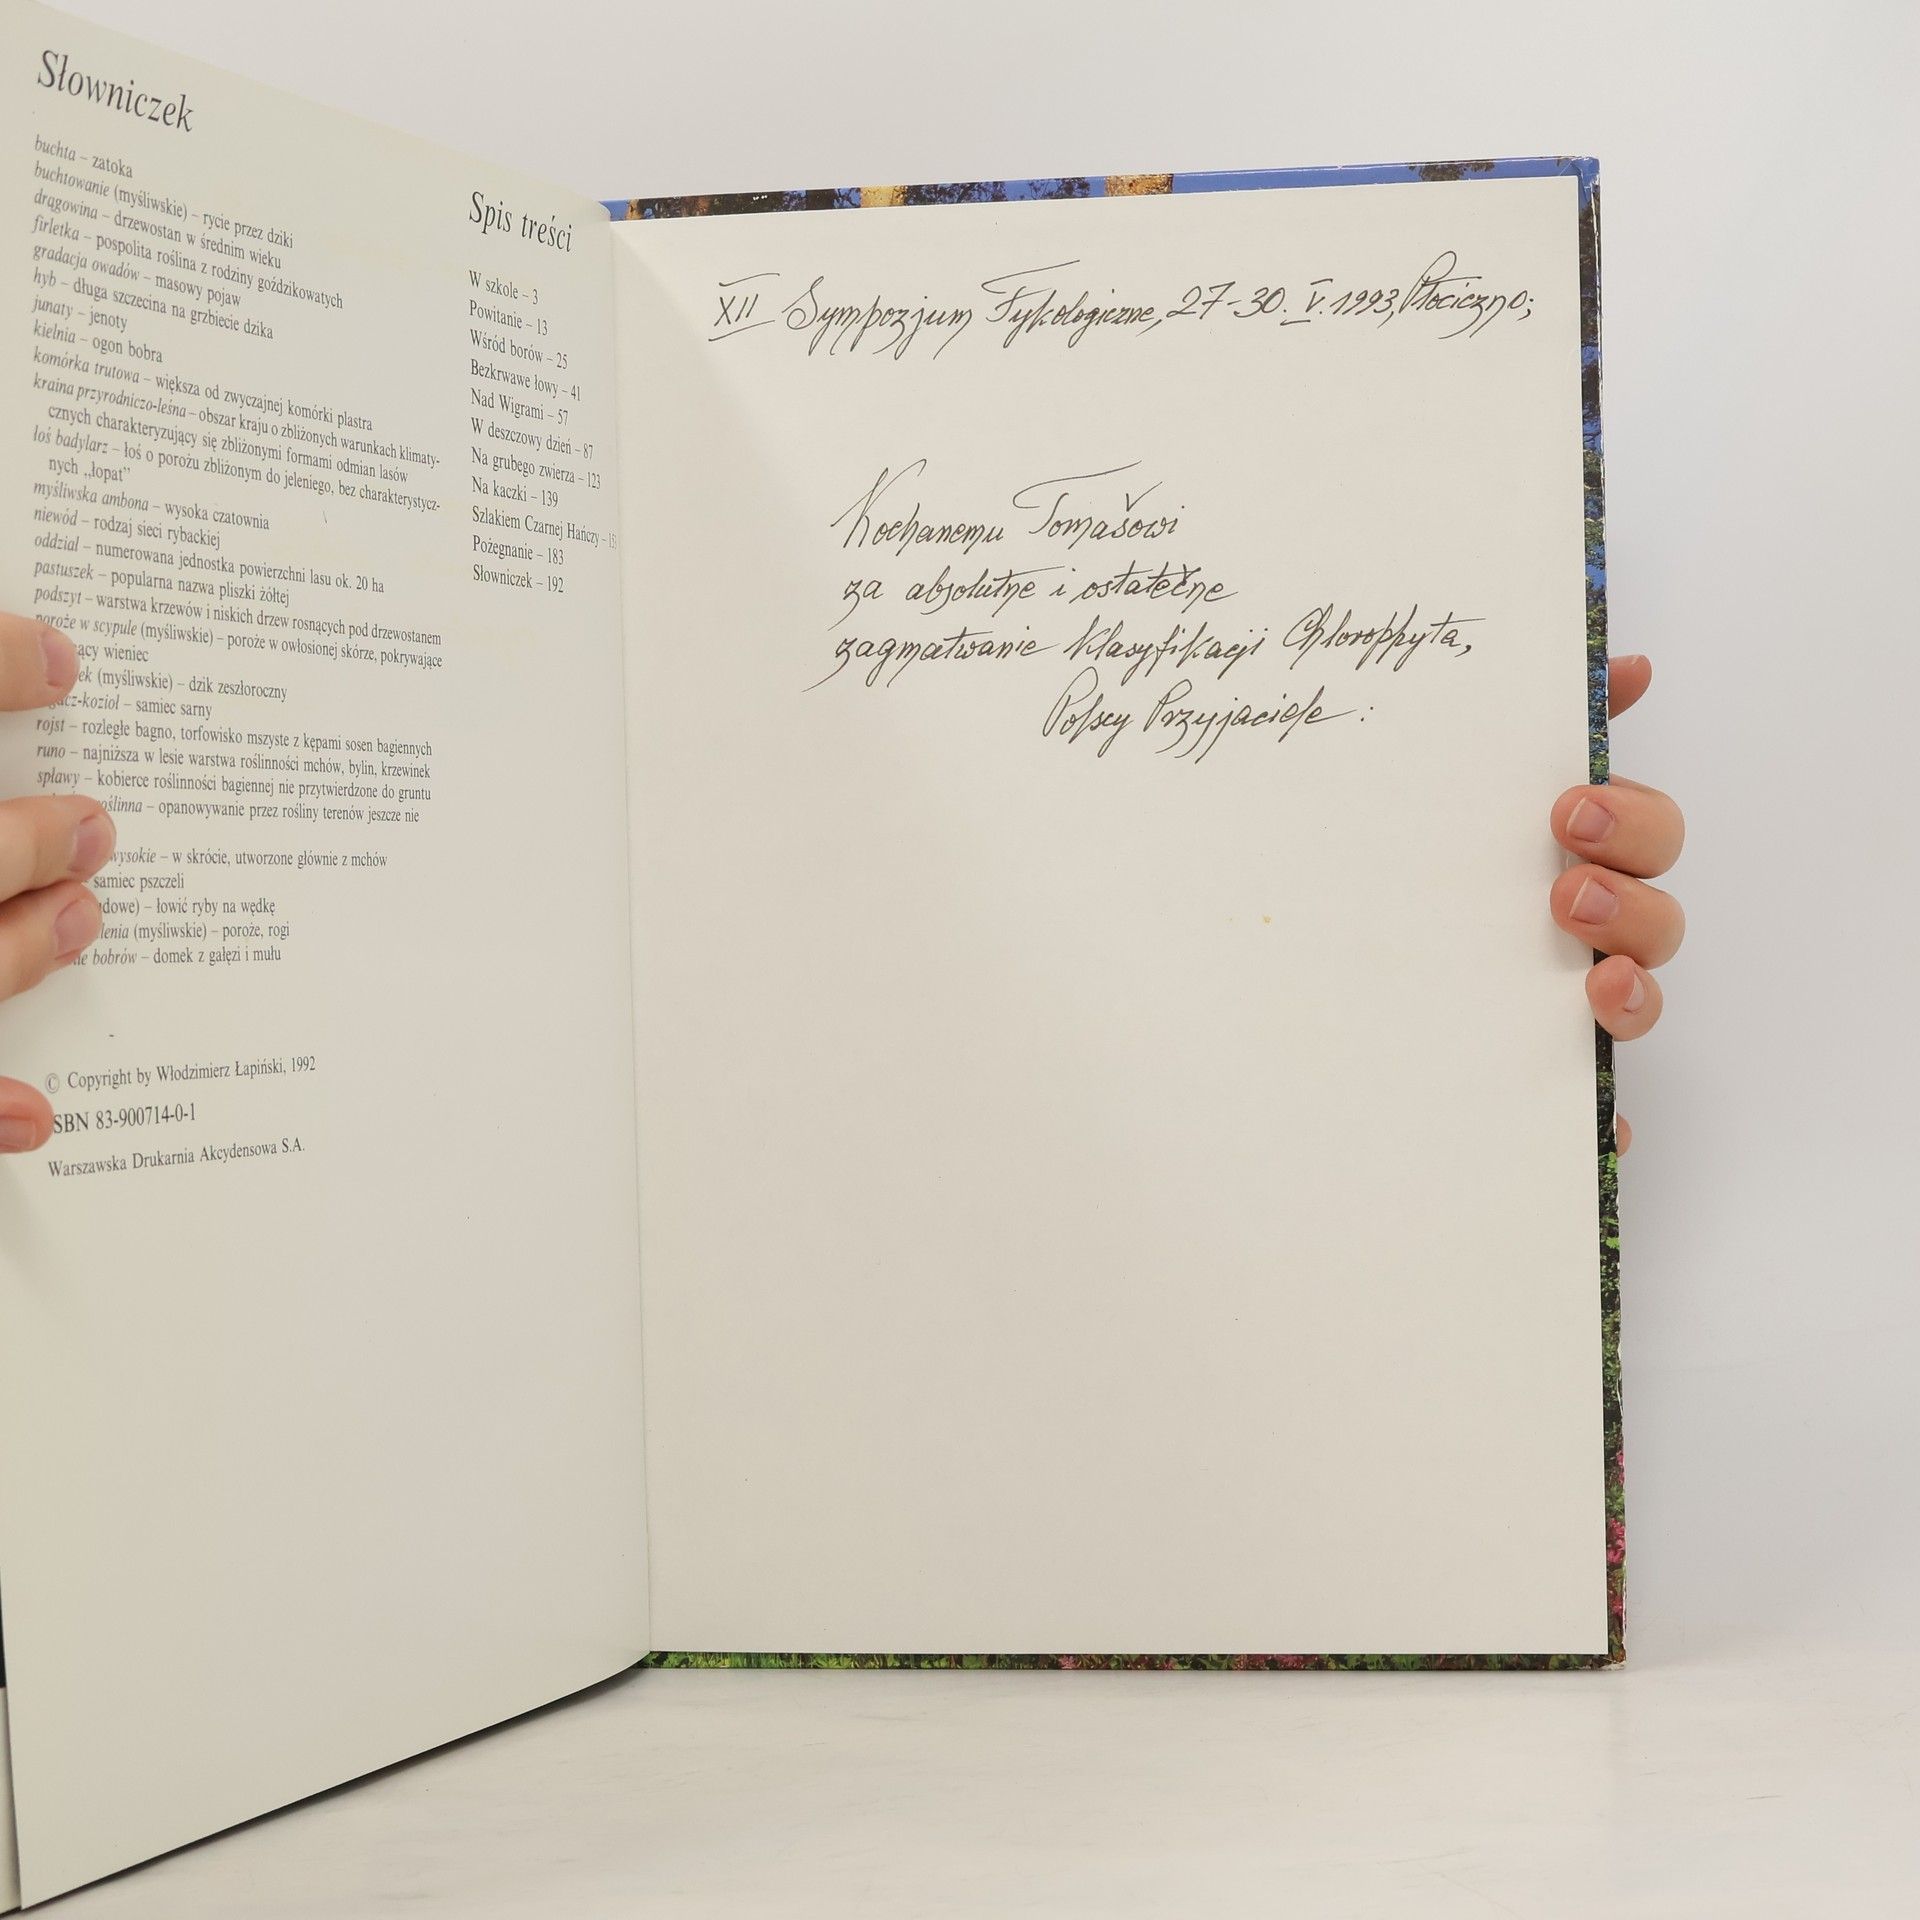 Słowniczek
buchta – zatoka
buchtowanie (myśliwskie) – rycie przez dziki
drągowina – drzewostan w średnim wieku
firletka – pospolita roślina z rodziny goździkowatych
gradacja owadów – masowy pojaw
hyb – długa szczecina na grzbiecie dzika
junaty – jenoty
kielnia – ogon bobra
komórka trutowa – większa od zwyczajnej komórki plastra
kraina przyrodniczo-leśna – obszar kraju o zbliżonych warunkach klimaty-
cznych charakteryzujący się zbliżonymi formami odmian lasów
łoś badylarz – łoś o porożu zbliżonym do jeleniego, bez charakterystycz-
nych „łopat”
myśliwska ambona – wysoka czatownia
niewód – rodzaj sieci rybackiej
oddział – numerowana jednostka powierzchni lasu ok. 20 ha
pastuszek – popularna nazwa pliszki żółtej
podszyt – warstwa krzewów i niskich drzew rosnących pod drzewostanem
poroże w scypule (myśliwskie) – poroże w owłosionej skórze, pokrywające
wieniec
(myśliwskie) – dzik zeszłoroczny
– samiec sarny
rojst – rozległe bagno, torfowisko mszyste z kępami sosen bagiennych
runo – najniższa w lesie warstwa roślinności mchów, bylin, krzewinek
spławy – kobierce roślinności bagiennej nie przytwierdzone do gruntu
– opanowywanie przez rośliny terenów jeszcze nie
wysokie – w skrócie, utworzone głównie z mchów
samiec pszczeli
– łowić ryby na wędkę
(myśliwskie) – poroże, rogi
bobrów – domek z gałęzi i mułu
© Copyright by Włodzimierz Łapiński, 1992
ISBN 83-900714-0-1
Warszawska Drukarnia Akcydensowa S.A.
Spis treści
W szkole – 3
Powitanie – 13
Wśród borów – 25
Bezkrwawe łowy – 41
Nad Wigrami – 57
W deszczowy dzień – 87
Na grubego zwierza – 123
Na kaczki – 139
Szlakiem Czarnej Hańczy –
Pożegnanie – 183
Słowniczek – 192
XII Sympozjum Fykologiczne, 27-30. V. 1993, Płociczno;
Kochanemu Tomašowi
za absolutne i ostatečne
zagmatwanie klasyfikacji Chlorophyta,
Polscy Przyjaciele :